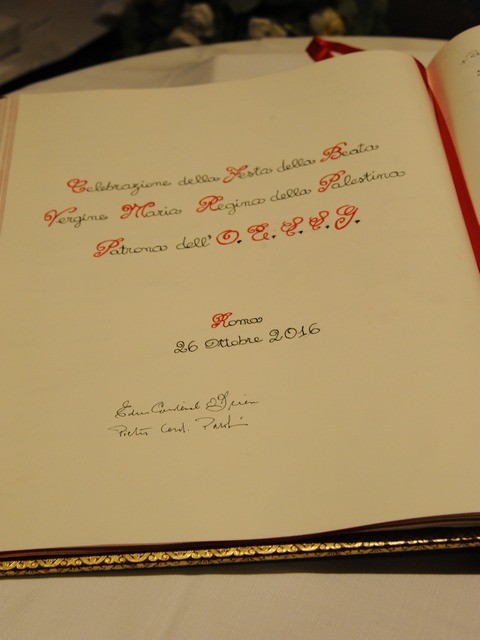 Celebrazione della Festa della Beata
Vergine Maria Regina della Palestina
Patrona dell' O. E. S. S. G.
Roma
26 Ottobre 2016
Edwin Cardinal O'Brien
Pietro Card. Parolin